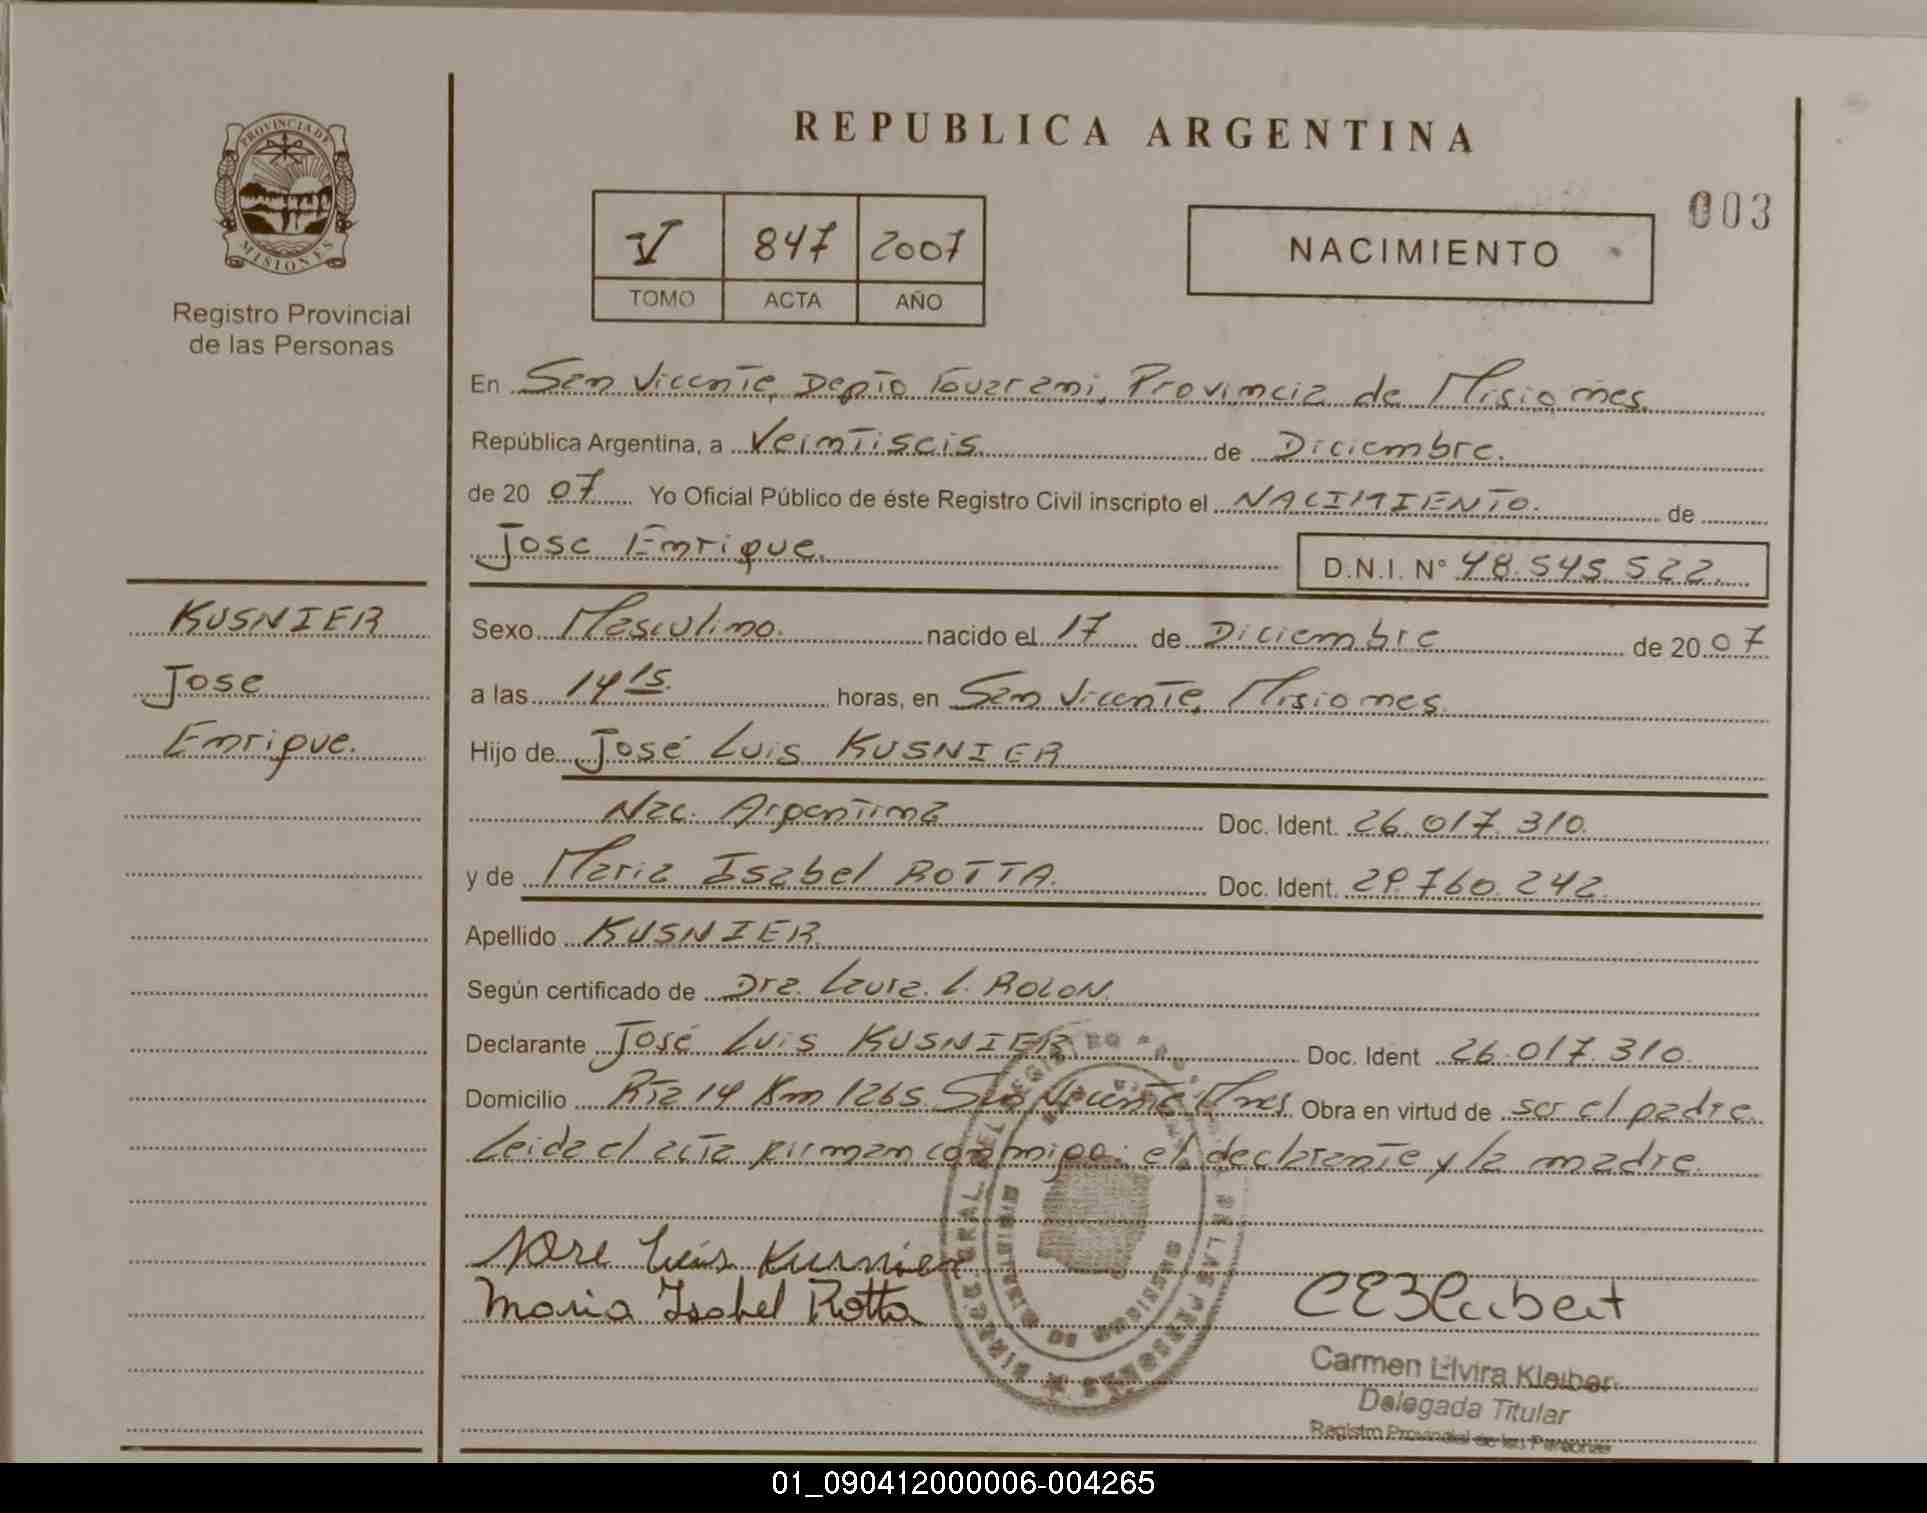 PROVINCIA DE
MISIONES
Registro Provincial
de las Personas
REPUBLICA ARGENTINA
003
V 847 2007
TOMO ACTA AÑO
NACIMIENTO
En San Vicente, Depto Guarani, Provincia de Misiones.
República Argentina, a Veintiseis de Diciembre.
de 20 07 Yo Oficial Público de éste Registro Civil inscripto el NACIMIENTO. de
Jose Enrique. D.N.I. N° 48.545.522.
KUSNIER
Jose
Enrique.
Sexo Masculino. nacido el 17 de Diciembre de 20 07
a las 14 15. horas, en San Vicente, Misiones.
Hijo de José Luis KUSNIER
Nac. Argentina Doc. Ident. 26.017.310.
y de Maria Isabel ROTTA. Doc. Ident. 29.760.242.
Apellido KUSNIER.
Según certificado de Dra. Laura. L. ROLON.
Declarante José Luis KUSNIER Doc. Ident 26.017.310.
Domicilio Rta 14 Km 1265 San Vicente Mnes. Obra en virtud de ser el padre.
Leida el acta firman conmigo: el declarante y la madre.
Jose Luis Kusnier
Maria Isabel Rotta
Carmen Elvira Kleiber
Delegada Titular
Registro Provincial de las Personas
01_090412000006-004265